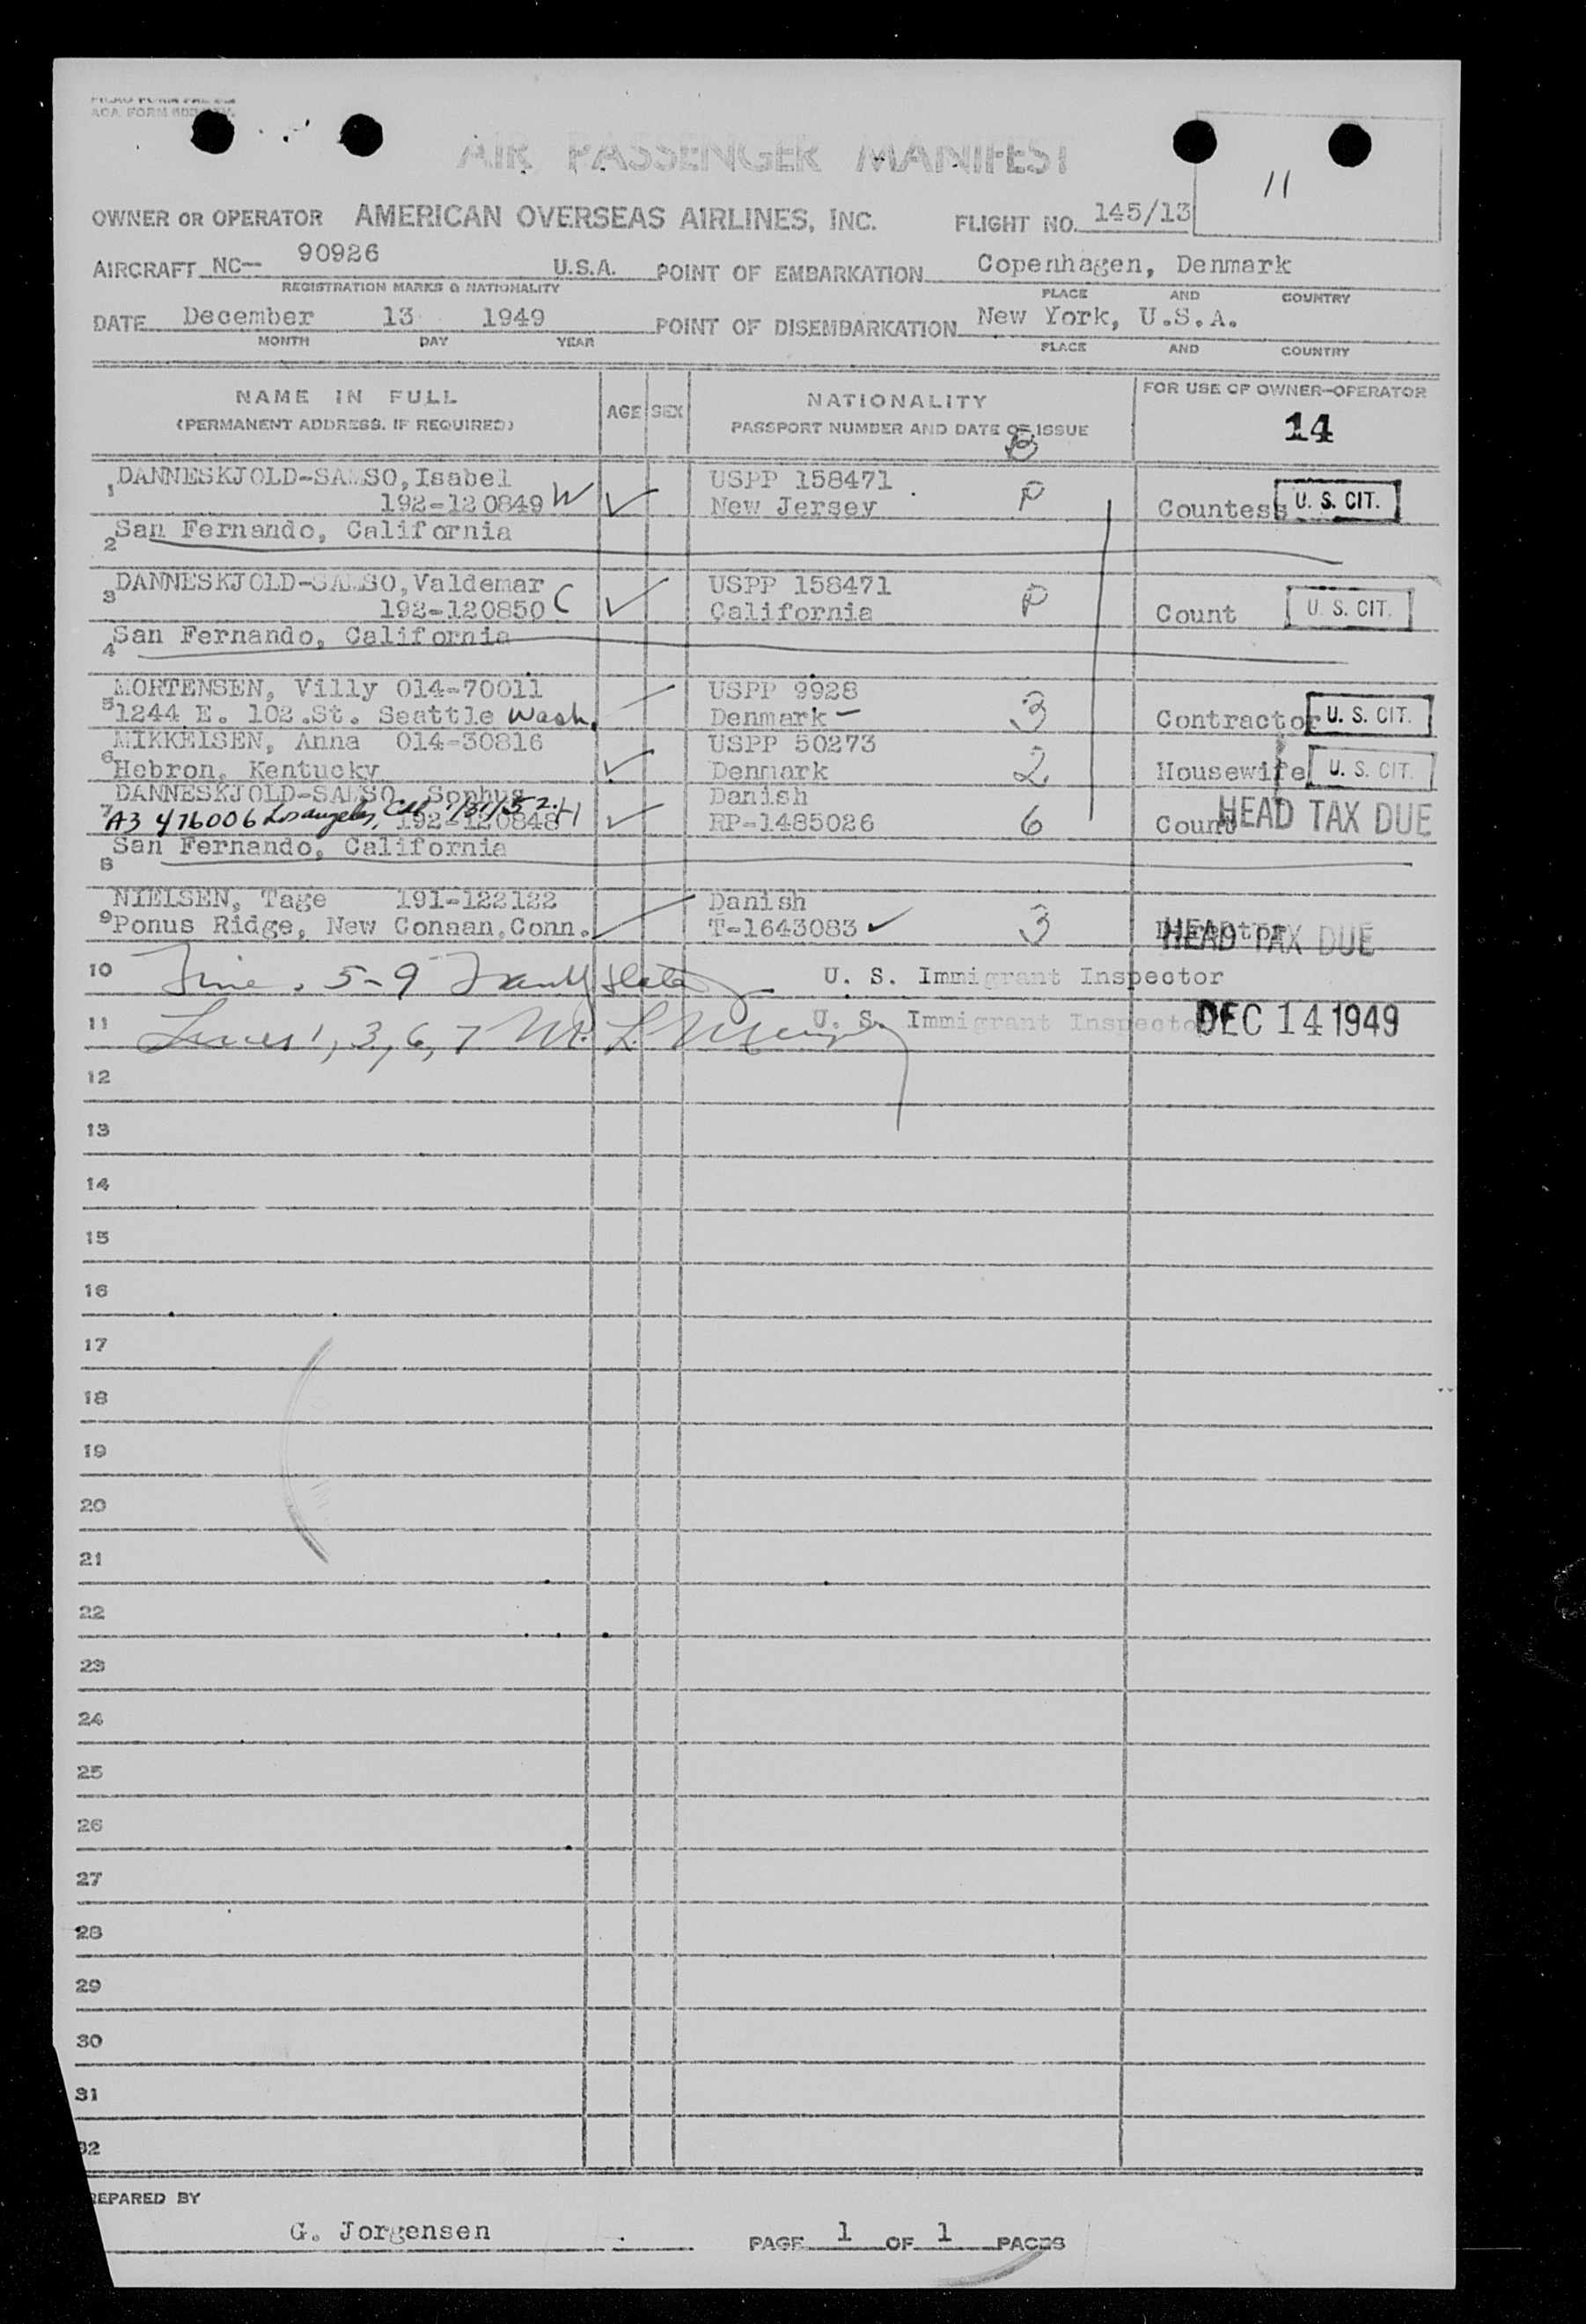 AOA FORM
11
AIR PASSENGER MANIFEST
OWNER OR OPERATOR AMERICAN OVERSEAS AIRLINES, INC. FLIGHT NO. 145/13
AIRCRAFT NC— 90926 U.S.A. POINT OF EMBARKATION Copenhagen, Denmark
REGISTRATION MARKS & NATIONALITY PLACE AND COUNTRY
DATE December 13 1949 POINT OF DISEMBARKATION New York, U.S.A.
MONTH DAY YEAR PLACE AND COUNTRY
NAME IN FULL AGE SEX NATIONALITY FOR USE OF OWNER-OPERATOR
(PERMANENT ADDRESS. IF REQUIRED) PASSPORT NUMBER AND DATE OF ISSUE 14
DANNESKJOLD-SAMSO, Isabel USPP 158471
1 192-120849 W New Jersey P Countess U. S. CIT.
2 San Fernando, California
DANNESKJOLD-SAMSO, Valdemar USPP 158471
3 192-120850 C California P Count U. S. CIT.
4 San Fernando, California
MORTENSEN, Villy 014-70011 USPP 9928
5 1244 E. 102.St. Seattle Wash. Denmark — 3 Contractor U. S. CIT.
MIKKEISEN, Anna 014-30816 USPP 50273
6 Hebron, Kentucky Denmark 2 Housewife U. S. CIT.
DANNESKJOLD-SAMSO, Sophus Danish
7 A3 476006 Los angeles, Cal 1/31/52 192-120848 H RP-1485026 6 Count HEAD TAX DUE
8 San Fernando, California
NIELSEN, Tage 191-122122 Danish
9 Ponus Ridge, New Conaan, Conn. T-1643083 3 Director HEAD TAX DUE
10 Line. 5-9 U. S. Immigrant Inspector
11 Lines 1, 3, 6, 7 M. L. U. S. Immigrant Inspector DEC 14 1949
12
13
14
15
16
17
18
19
20
21
22
23
24
25
26
27
28
29
30
31
32
REPARED BY
G. Jorgensen PAGE 1 OF 1 PAGES